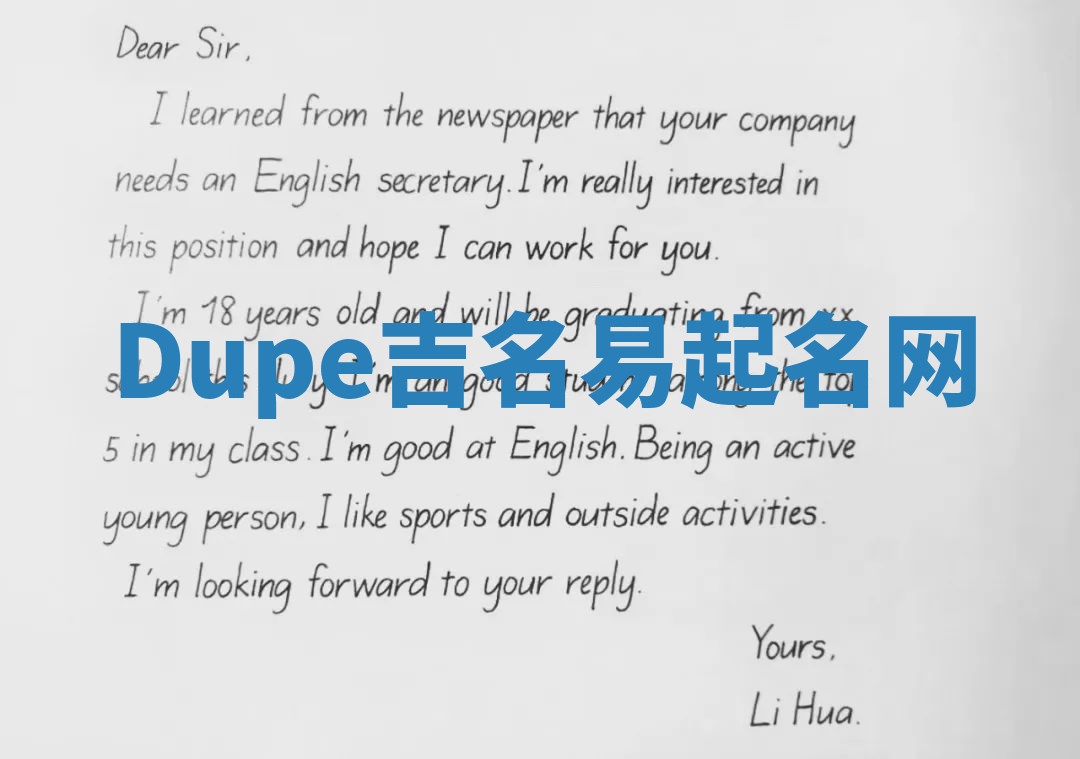 Dear Sir,
I learned from the newspaper that your company
needs an English secretary. I'm really interested in
this position and hope I can work for you.
I'm 18 years old and will be graduating from xx
Dupe吉名易起名网
school this July. I'm a good student among the top
5 in my class. I'm good at English. Being an active
young person, I like sports and outside activities.
I'm looking forward to your reply.
Yours,
Li Hua.